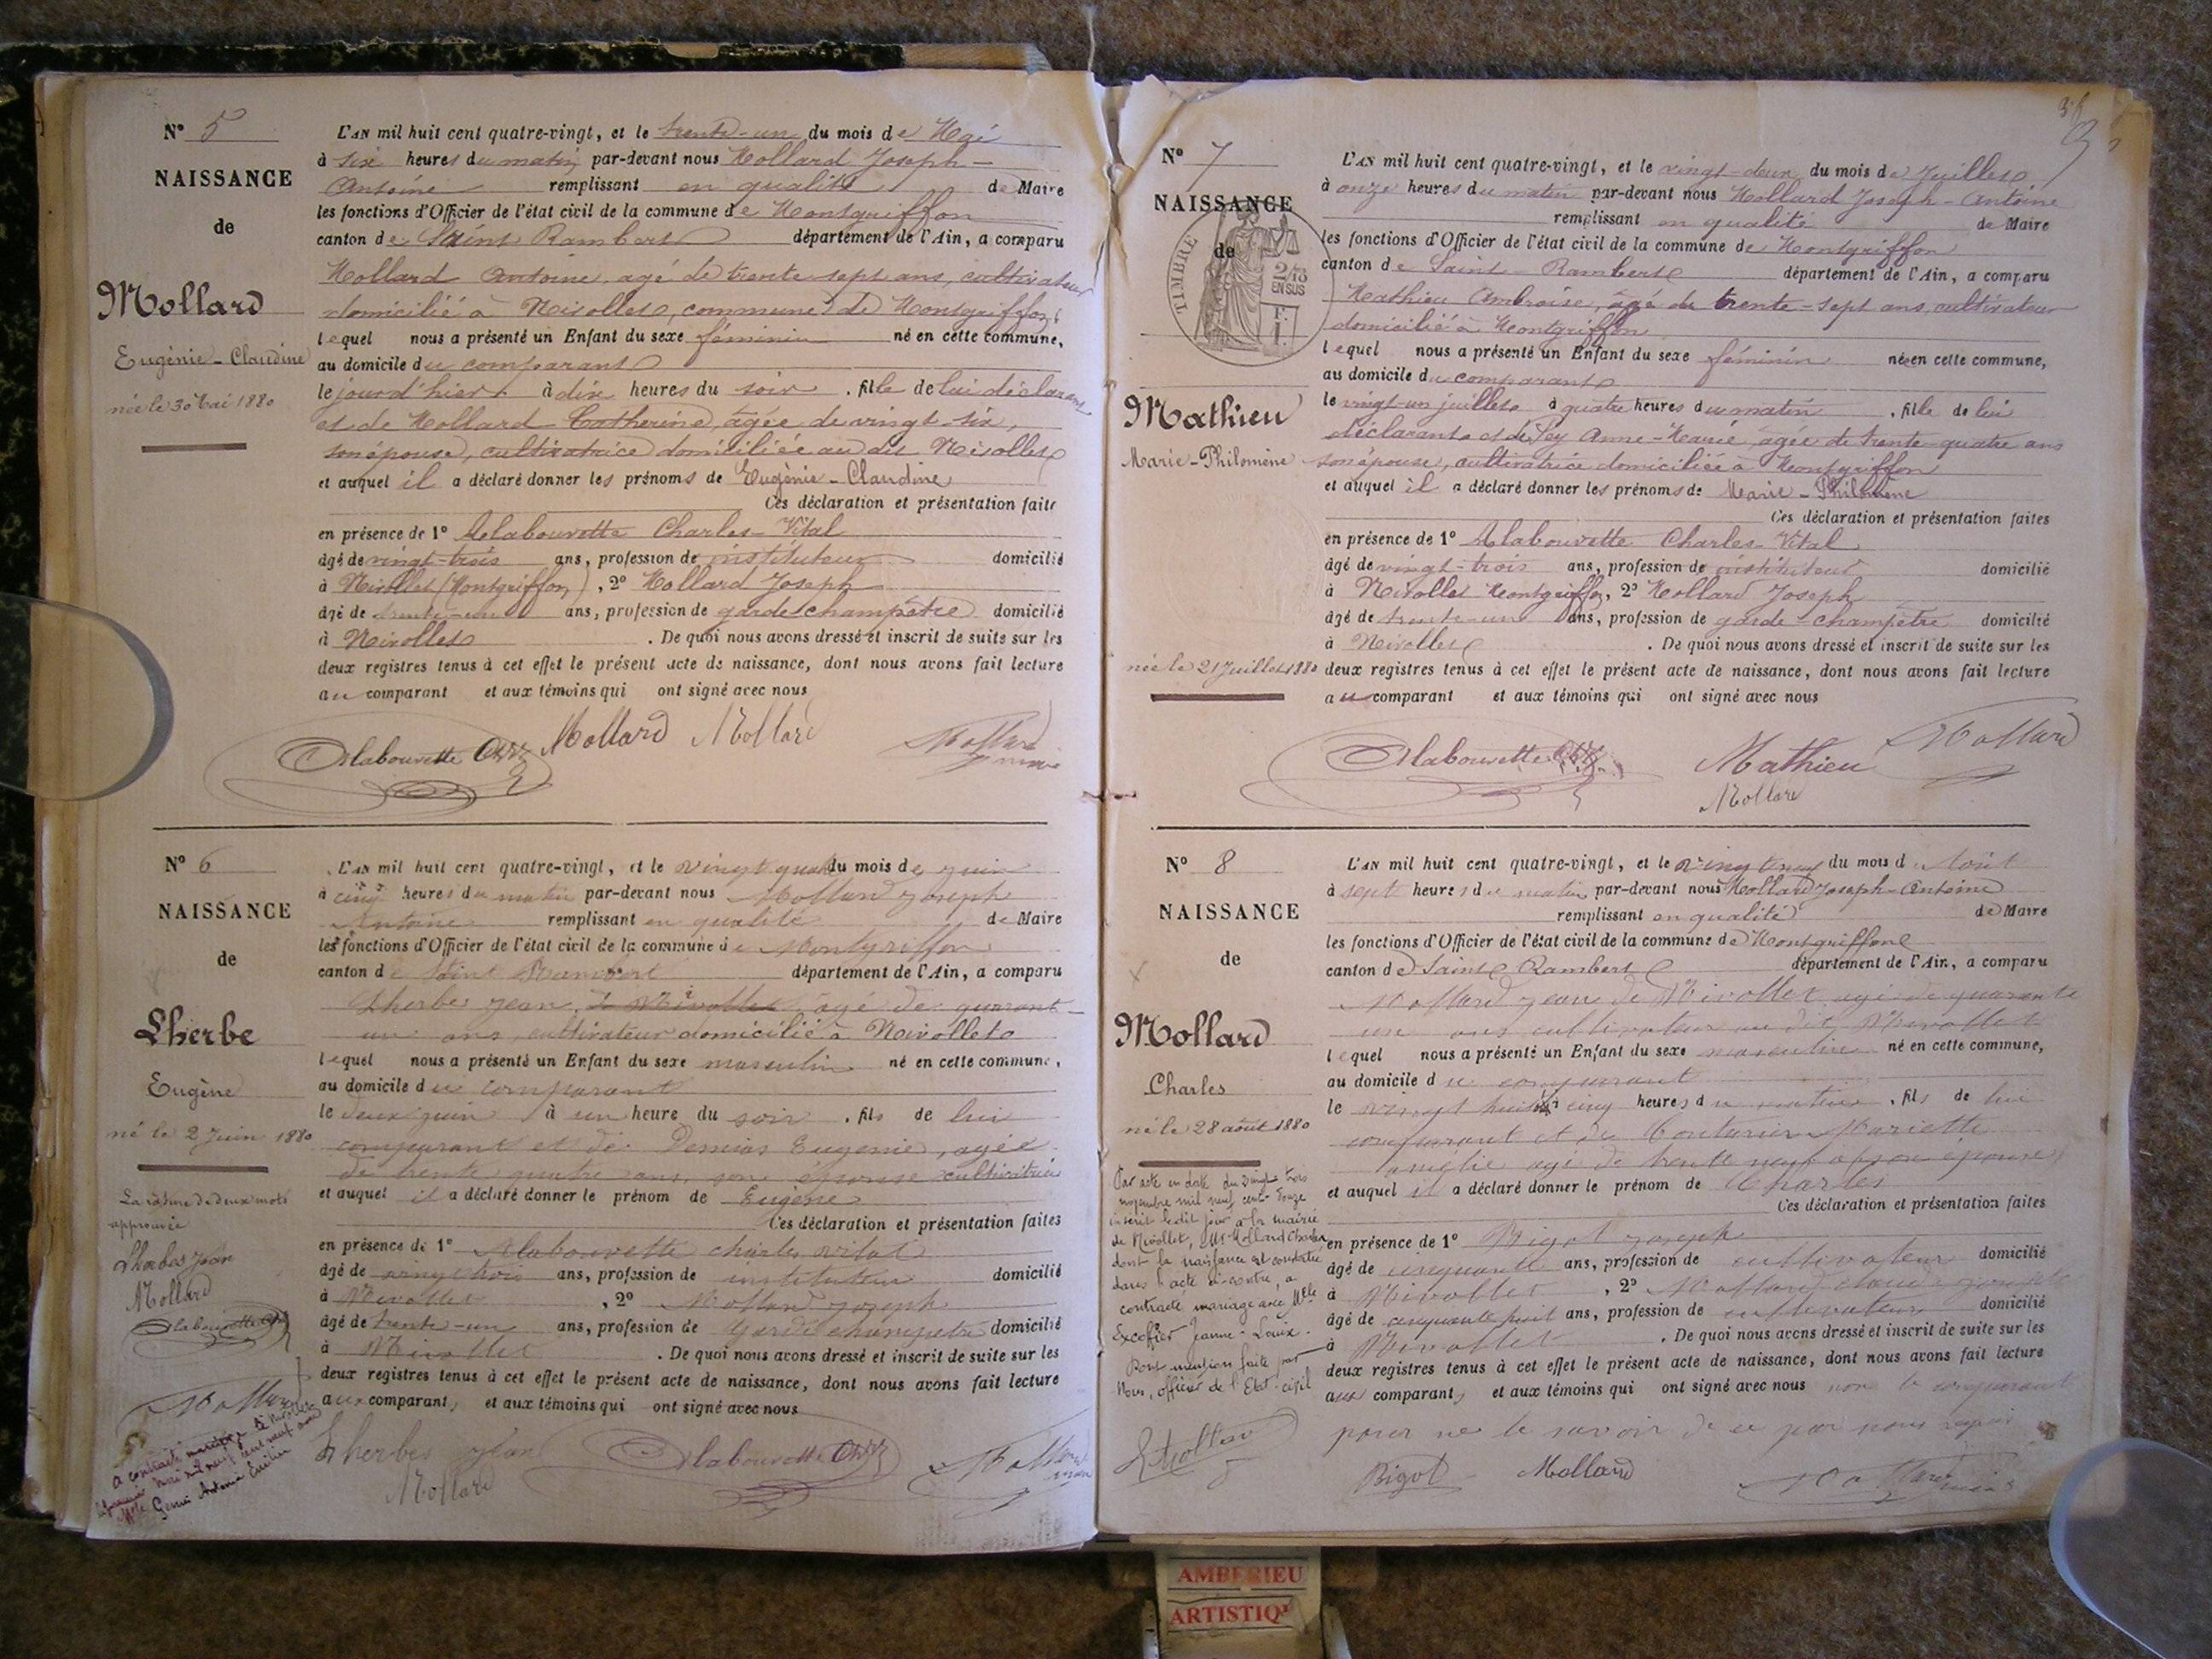 Nº 5
NAISSANCE
de
Mollard
Eugénie-Claudine
née le 30 Mai 1880
L'AN mil huit cent quatre-vingt, et le trente-un du mois de Mai
à six heures du matin par-devant nous Mollard Joseph-
Antoine remplissant en qualité de Maire
les fonctions d'Officier de l'état civil de la commune de Montgriffon
canton de Saint Rambert département de l'Ain, a comparu
Mollard Antoine, agé de trente sept ans, cultivateur
domicilié à Nivollet, commune de Montgriffon,
lequel nous a présenté un Enfant du sexe féminin né en cette commune,
au domicile du comparant
le jour d'hier à dix heures du soir, fille de lui déclarant
et de Mollard Catherine, agée de vingt-six,
son épouse, cultivatrice domiciliée au dit Nivollet
et auquel il a déclaré donner les prénoms de Eugénie-Claudine
Ces déclaration et présentation faite
en présence de 1º Alabouvette Charles-Vital
âgé de vingt-trois ans, profession de instituteur domicilié
à Nivollet (Montgriffon), 2º Mollard Joseph
âgé de trente-un ans, profession de garde champêtre domicilié
à Nivollet. De quoi nous avons dressé et inscrit de suite sur les
deux registres tenus à cet effet le présent acte de naissance, dont nous avons fait lecture
au comparant et aux témoins qui ont signé avec nous
Alabouvette Ch. V. Mollard Mollard Mollard
maire
Nº 6
NAISSANCE
de
Lherbe
Eugène
né le 2 Juin 1880
La rature de deux mots
approuvée
Lherbe Jean
Mollard
Alabouvette
Mollard
a contracté mariage à Nivollet
le premier mai mil neuf cent neuf avec
Melle
L'AN mil huit cent quatre-vingt, et le vingt quatre du mois de juin
à cinq heures du matin par-devant nous Mollard Joseph
Antoine remplissant en qualité de Maire
les fonctions d'Officier de l'état civil de la commune de Montgriffon
canton de Saint Rambert département de l'Ain, a comparu
Lherbe Jean, de Nivollet, agé de quarant-
un ans, cultivateur domicilié à Nivollet
lequel nous a présenté un Enfant du sexe masculin né en cette commune,
au domicile du comparant
le deux juin à un heure du soir, fils de lui
comparant et de Demias Eugenie, agée
de trente quatre ans, son épouse cultivatrice
et auquel il a déclaré donner le prénom de Eugène
Ces déclaration et présentation faites
en présence de 1º Alabouvette charles vital
âgé de vingt trois ans, profession de instituteur domicilié
à Nivollet, 2º Mollard Joseph
âgé de trente-un ans, profession de garde champetre domicilié
à Nivollet. De quoi nous avons dressé et inscrit de suite sur les
deux registres tenus à cet effet le présent acte de naissance, dont nous avons fait lecture
aux comparant, et aux témoins qui ont signé avec nous
Lherbe Jean Alabouvette Ch. V. Mollard
Mollard maire
Nº 7
NAISSANCE
de
TIMBRE
2/10
EN SUS
Mathieu
Marie-Philomène
née le 21 Juillet 1880
L'AN mil huit cent quatre-vingt, et le vingt-deux du mois de Juillet
à onze heures du matin par-devant nous Mollard Joseph-Antoine
remplissant en qualité de Maire
les fonctions d'Officier de l'état civil de la commune de Montgriffon
canton de Saint-Rambert département de l'Ain, a comparu
Mathieu Ambroise, âgé de trente-sept ans, cultivateur
domicilié à Montgriffon
lequel nous a présenté un Enfant du sexe féminin née en cette commune,
au domicile du comparant
le vingt-un juillet à quatre heures du matin, fille de lui
déclarant et de Sey Anne-Marie, agée de trente-quatre ans
son épouse, cultivatrice domiciliée à Montgriffon
et auquel il a déclaré donner les prénoms de Marie-Philomène
Ces déclaration et présentation faites
en présence de 1º Alabouvette Charles-Vital
âgé de vingt-trois ans, profession de instituteur domicilié
à Nivollet Montgriffon, 2º Mollard Joseph
âgé de trente-un ans, profession de garde-champêtre domicilié
à Nivollet. De quoi nous avons dressé et inscrit de suite sur les
deux registres tenus à cet effet le présent acte de naissance, dont nous avons fait lecture
au comparant et aux témoins qui ont signé avec nous
Alabouvette Ch. V. Mathieu Mollard
Mollard
Nº 8
NAISSANCE
de
Mollard
Charles
né le 28 août 1880
Par acte en date du vingt trois
novembre mil neuf cent onze
inscrit ledit jour à la mairie
de Nivollet, Mr Mollard Charles
dont la naissance est constatée
dans l'acte ci-contre, a
contracté mariage avec Melle
Excofier Jeanne-Louise.
Dont mention faite par
Nous, officier de l'Etat-civil
L'AN mil huit cent quatre-vingt, et le vingt neuf du mois d Août
à sept heures du matin, par-devant nous Mollard Joseph-Antoine
remplissant en qualité de Maire
les fonctions d'Officier de l'état civil de la commune de Montgriffon
canton de Saint Rambert département de l'Ain, a comparu
Mollard Jean de Nivollet agé de quarante
un ans cultivateur au dit Nivollet
lequel nous a présenté un Enfant du sexe masculin né en cette commune,
au domicile du comparant
le vingt huit à cinq heures du matin, fils de lui
comparant et de Couturier Mariette
amélie agé de trente neuf son épouse
et auquel il a déclaré donner le prénom de Charles
Ces déclaration et présentation faites
en présence de 1º Bigot Joseph
âgé de cinquante ans, profession de cultivateur domicilié
à Nivollet, 2º Mollard Claude Joseph
âgé de cinquante huit ans, profession de cultivateur domicilié
à Nivollet. De quoi nous avons dressé et inscrit de suite sur les
deux registres tenus à cet effet le présent acte de naissance, dont nous avons fait lecture
aux comparant, et aux témoins qui ont signé avec nous non le comparant
pour ne le savoir de ce par nous requis
Bigot Mollard Mollard
maire
AMBERIEU
ARTISTIQ